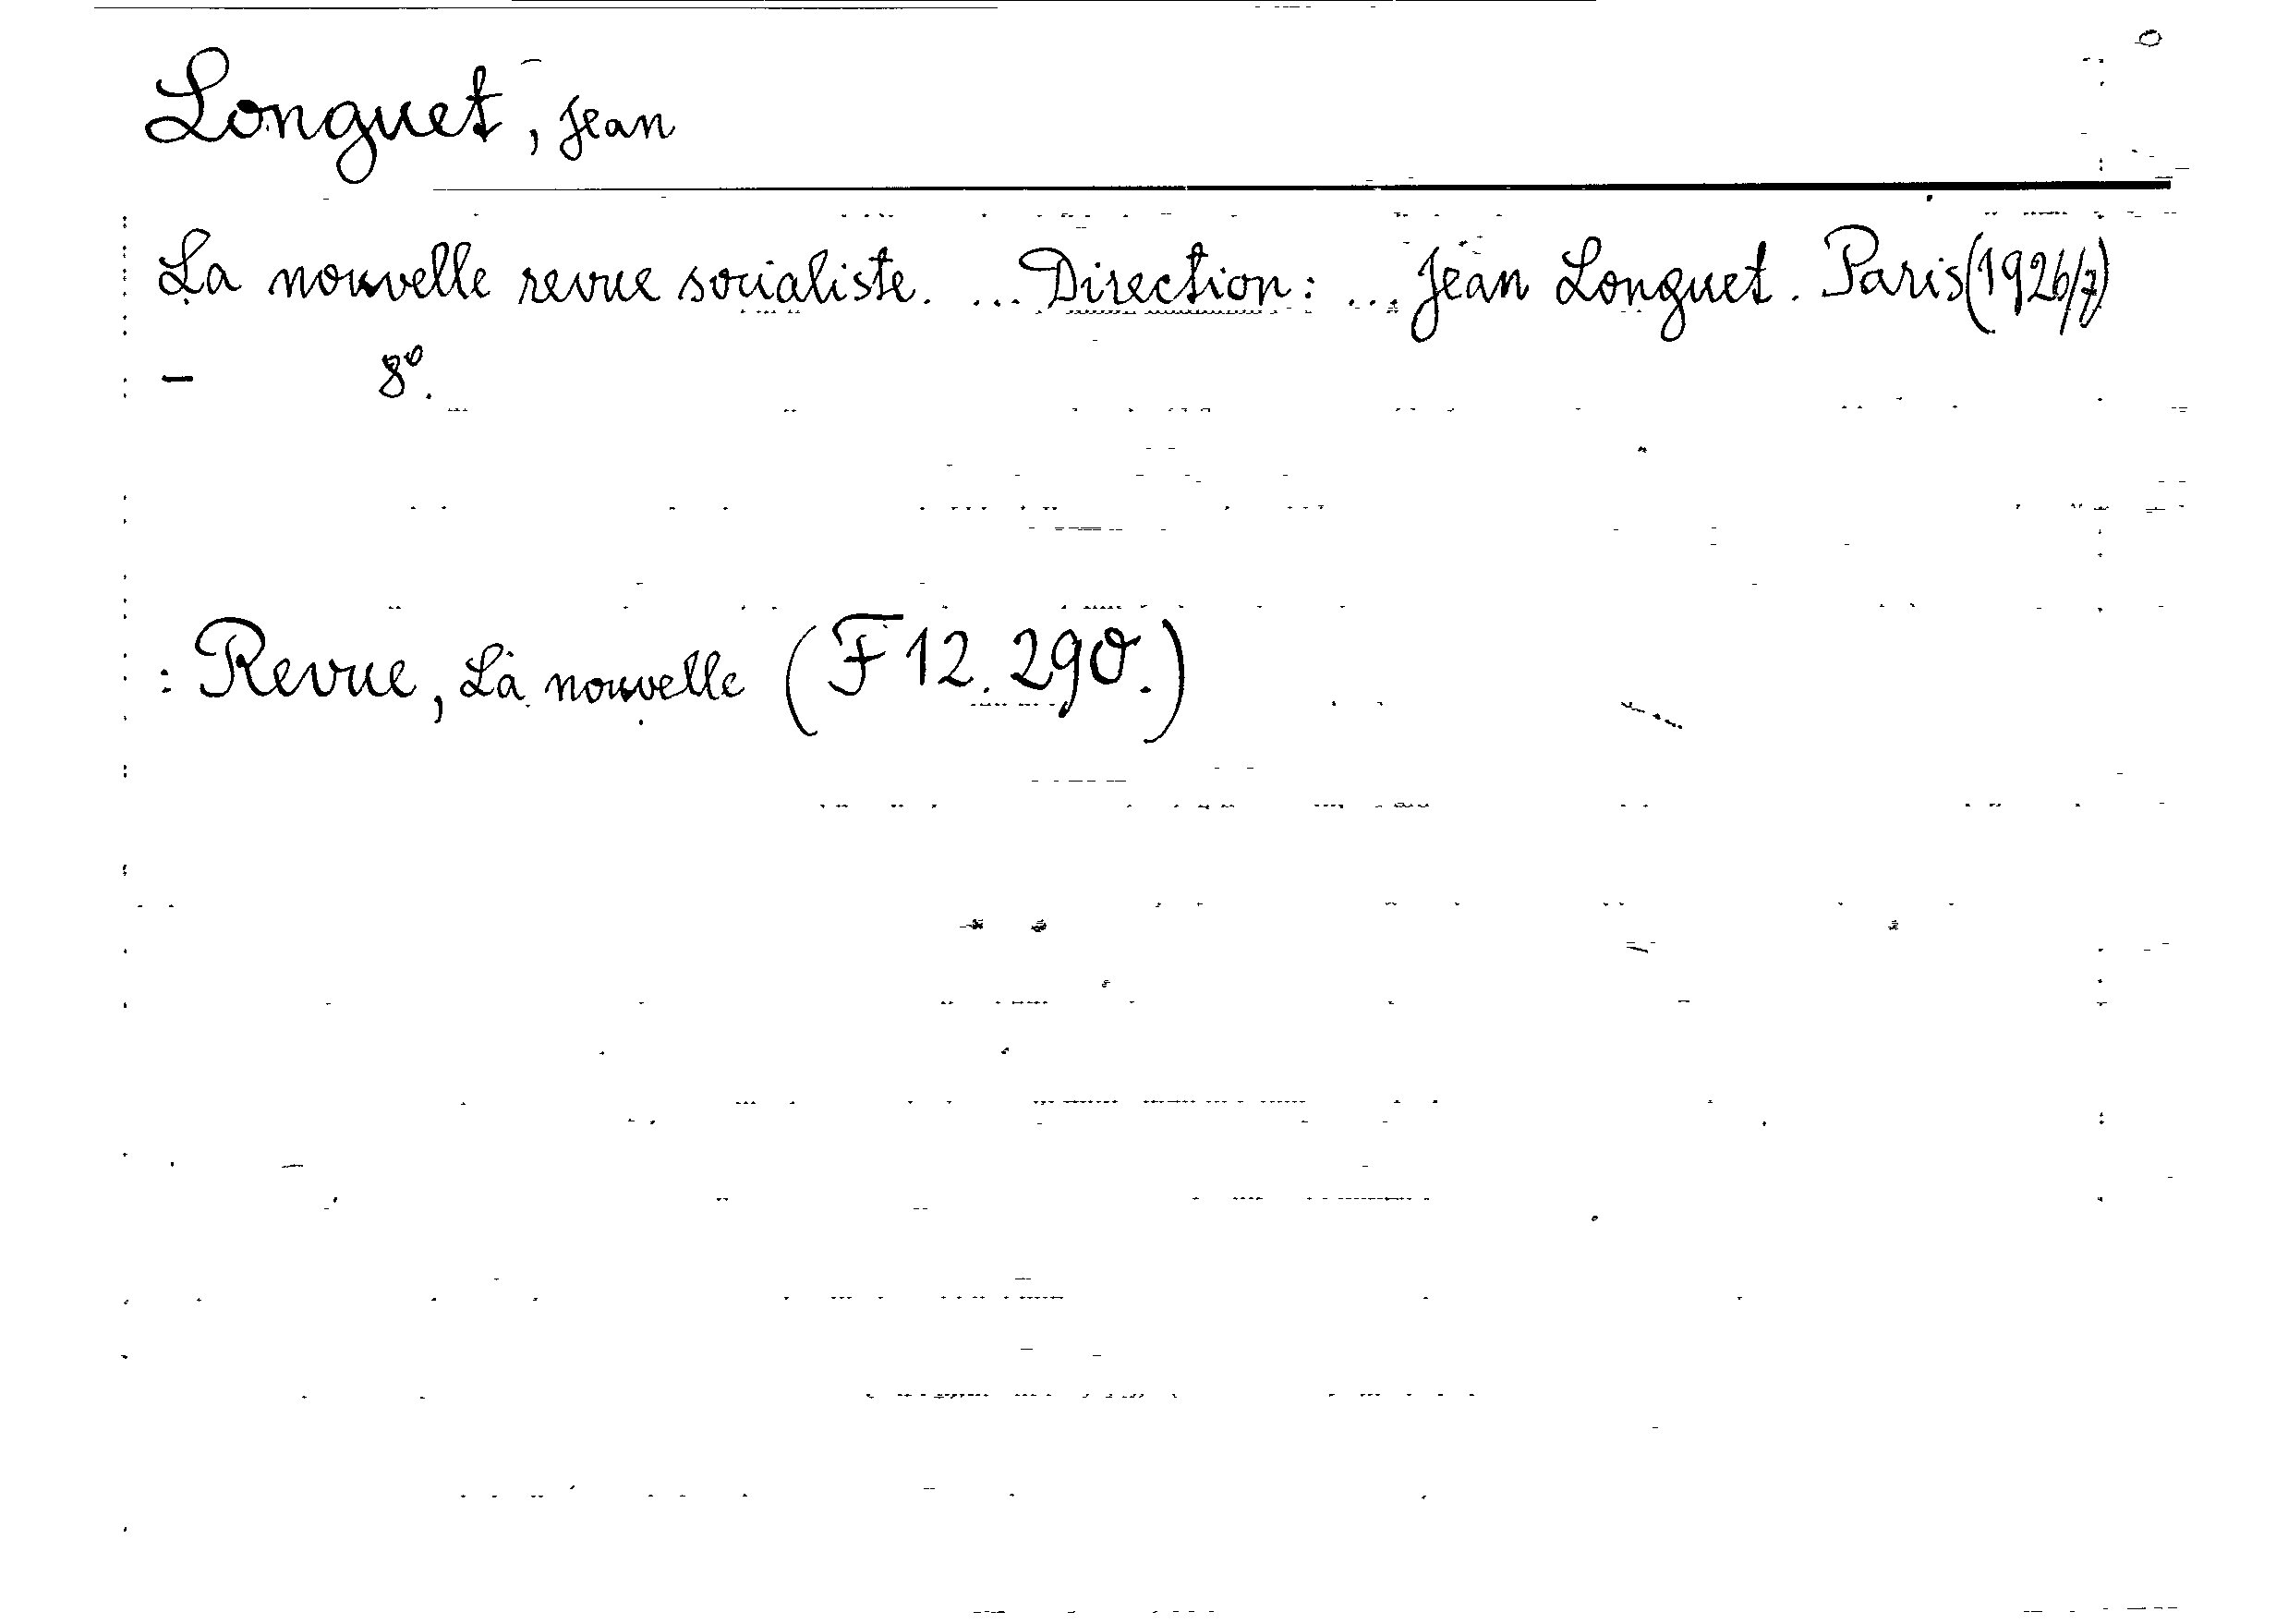 Longuet, Jean
La nouvelle revue socialiste. ... Direction: ... Jean Longuet. Paris (1926/7)
- 8°.
: Revue, La nouvelle (F 12.290.)